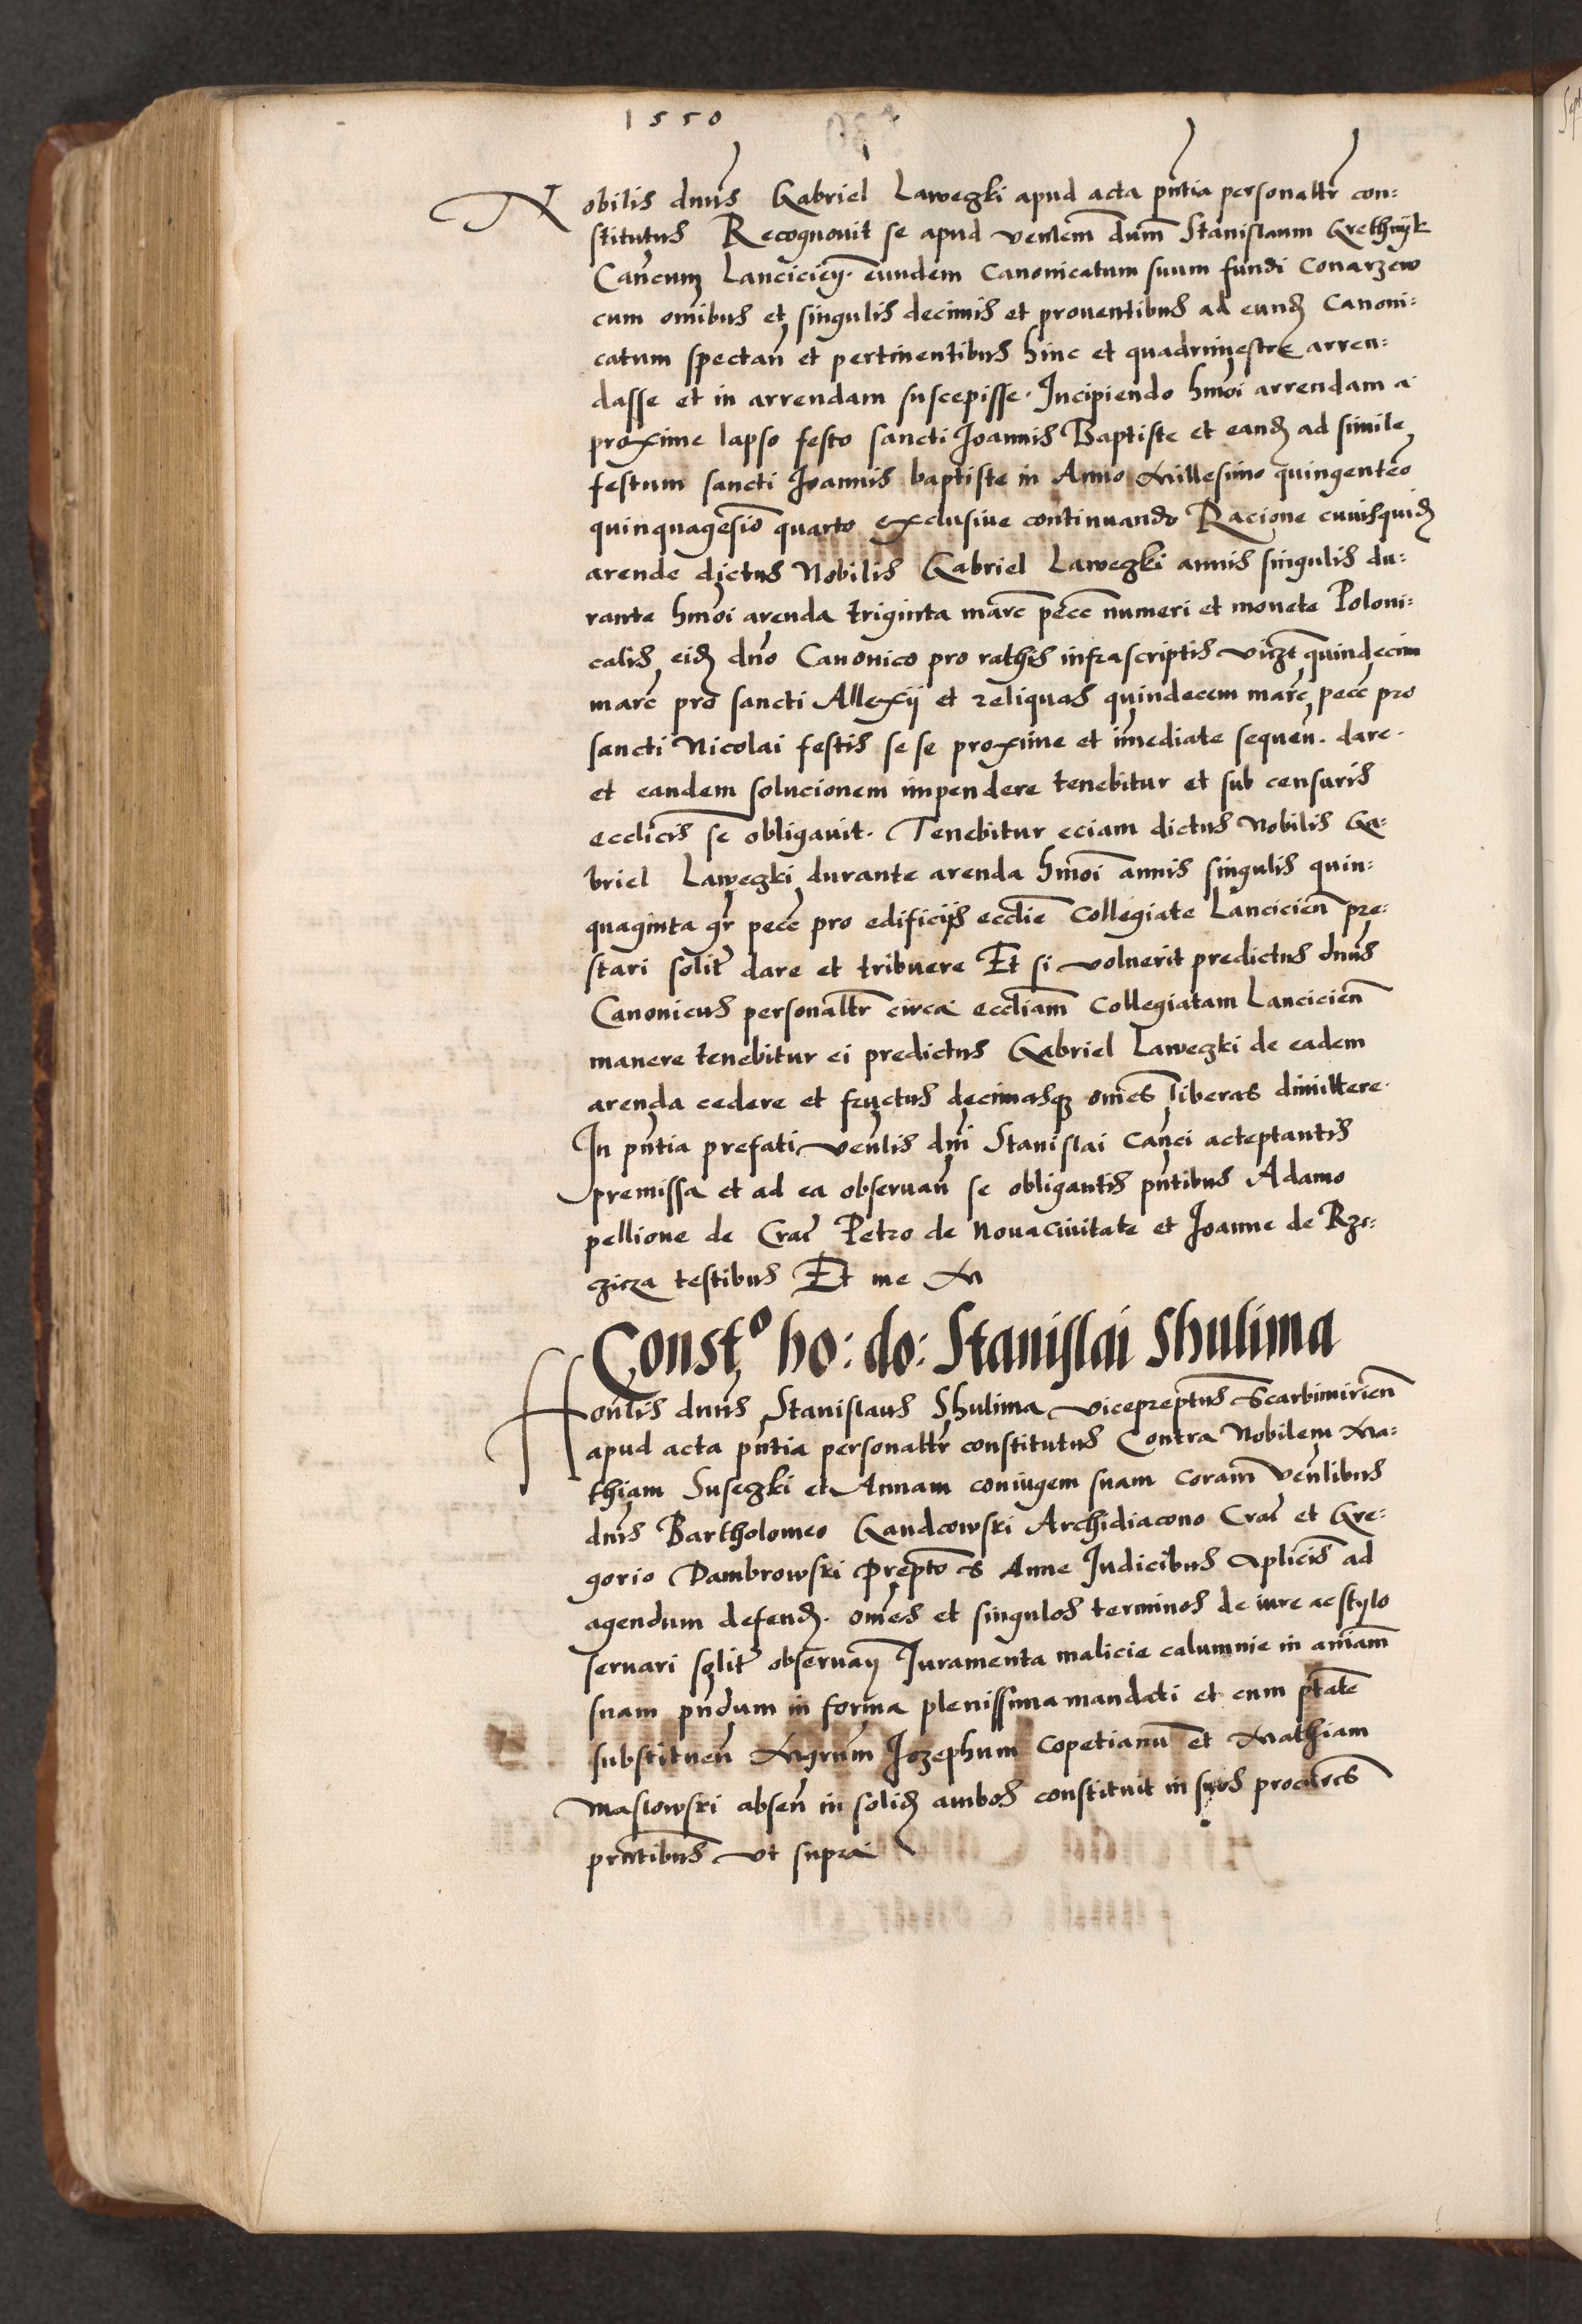 1550
Nobilis dnus Gabriel Lawegki apud acta pntia personaltr con:
stitutus Recognouit se apud venlem dnm Stanislaum Grethnyk
Cancum Lanciciey. eundem Canonicatum suum fundi Conarzew
cum omibus et singulis decimis et prouentibus ad eund Canoni:
catum spectan et pertinentibus hinc et quadrimestre arren:
dasse et in arrendam suscepisse. Incipiendo hmoi arrendam a
proxime lapso festo sancti Joannis Baptiste et eand ad simile
festum sancti Joannis baptiste in Anno Millesimo quingenteo
quinquagesio quarto exclusiue continuando Racione cuiusquid
arende dictus Nobilis Gabriel Lawegki annis singulis du:
rante hmoi arenda triginta marc pecc numeri et monete Poloni:
calis eid dno Canonico pro rathis infrascriptis vizt quindecim
marc pro sancti Allexii et reliquas quindecem marc pecc pro
sancti Nicolai festis se se proxime et imediate sequen. dare.
et eandem solucionem impendere tenebitur et sub censuris
ecclicis se obligauit. Tenebitur eciam dictus Nobilis Ga:
briel Lawegki durante arenda hmoi annis singulis quin:
quaginta gr pecc pro edificijs ecclie Collegiate Lancicien pre:
stari solit dare et tribuere Et si voluerit predictus dnus
Canonicus personaltr circa eccliam Collegiatam Lancicien
manere tenebitur ei predictus Gabriel Lawegki de eadem
arenda cedere et fructus decimasq omes liberas dimittere.
In pntia prefati venlis dni Stanislai Canci acceptantis
premissa et ad ea obseruan se obligantis pntibus Adamo
pellione de Crac Petro de Nouaciuitate et Joanne de Rze:
czicza testibus Et me M
Const.o ho: do: Stanislai Shulima
Honlis dnus Stanislaus Shulima vicepreptus Scarbimirien
apud acta pntia personaltr constitutus Contra Nobilem Ma:
thiam Susegki et Annam coniugem suam coram venlibus
dnis Bartholomeo Gandcowski Archidiacono Crac et Gre:
gorio Dambrowski Prepto S Anne Judicibus Aplicis ad
agendum defend. omes et singulos terminos de iure ac stylo
seruari solit obseruan Juramenta malicie calumnie in aniam
suam pndum in forma plenissima mandati et cum ptate
substituen Mgrum Jozephum Copetianu et Mathiam
Maslowski absen in solid ambos constituit in suos procatres
prntibus vt supra